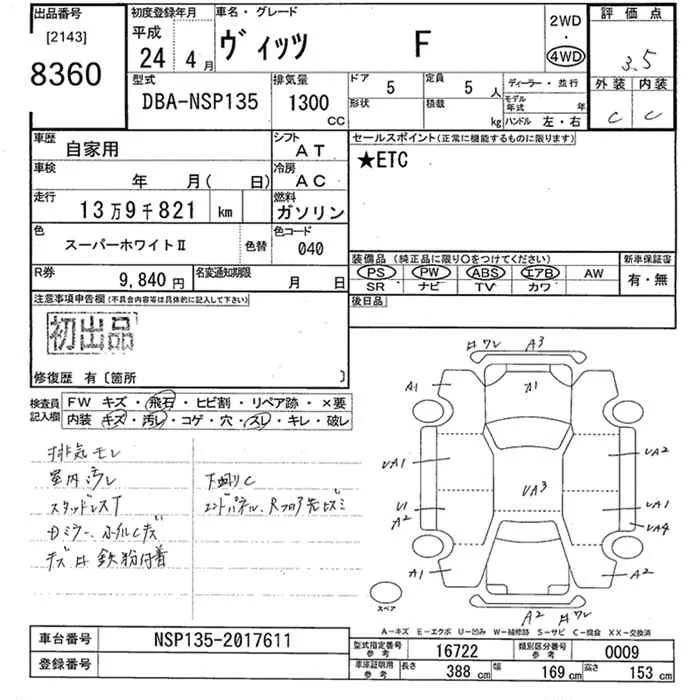 出品番号 初度登録年月 車名・グレード 2WD ・ 4WD 評価点
[2143] 平成 ヴィッツ F 3.5
8360 24年 4月 外装 内装
型式 排気量 ドア 5 定員 5人 ディーラー・並行 C C
DBA-NSP135 1300CC 形状 積載 kg モデル年式 年 ハンドル 左・右
車歴 自家用 シフト AT セールスポイント(正常に機能するものに限ります)
車検 年 月( 日) 冷房 AC ★ETC
走行 13万9千821 km 燃料 ガソリン
色 スーパーホワイトⅡ 色替 色コード 040
装備品(純正品に限り○をつけてください) 新車保証書
R券 9,840円 名変通知期限 月 日 PS PW ABS エアB AW 有・無
SR ナビ TV カワ
注意事項申告欄(不具合内容等は具体的に記入して下さい) 後日品
初出品
修復歴 有〔箇所 〕
検査員記入欄 FW キズ・飛石・ヒビ割・リペア跡・×要
内装 キズ・汚レ・コゲ・穴・スレ・キレ・破レ
排気モレ
室内汚レ 下廻りC
スタッドレスT エンドパネル、Rフロア先ヒズミ
Dミラー、ホイルCキズ
キズ 鉄粉付着
ワレ A3
A1 A1 A1
UA1 UA2
UA3
U1 A2 UA1
UA4
A1 A2
A2 ワレ
スペア
A－キズ E－エクボ U－凹み W－補修跡 S－サビ C－腐食 XX－交換済
車台番号 NSP135-2017611 型式指定番号 参考 16722 類別区分番号 参考 0009
登録番号 車庫証明用 参考 長さ 388cm 幅 169cm 高さ 153cm